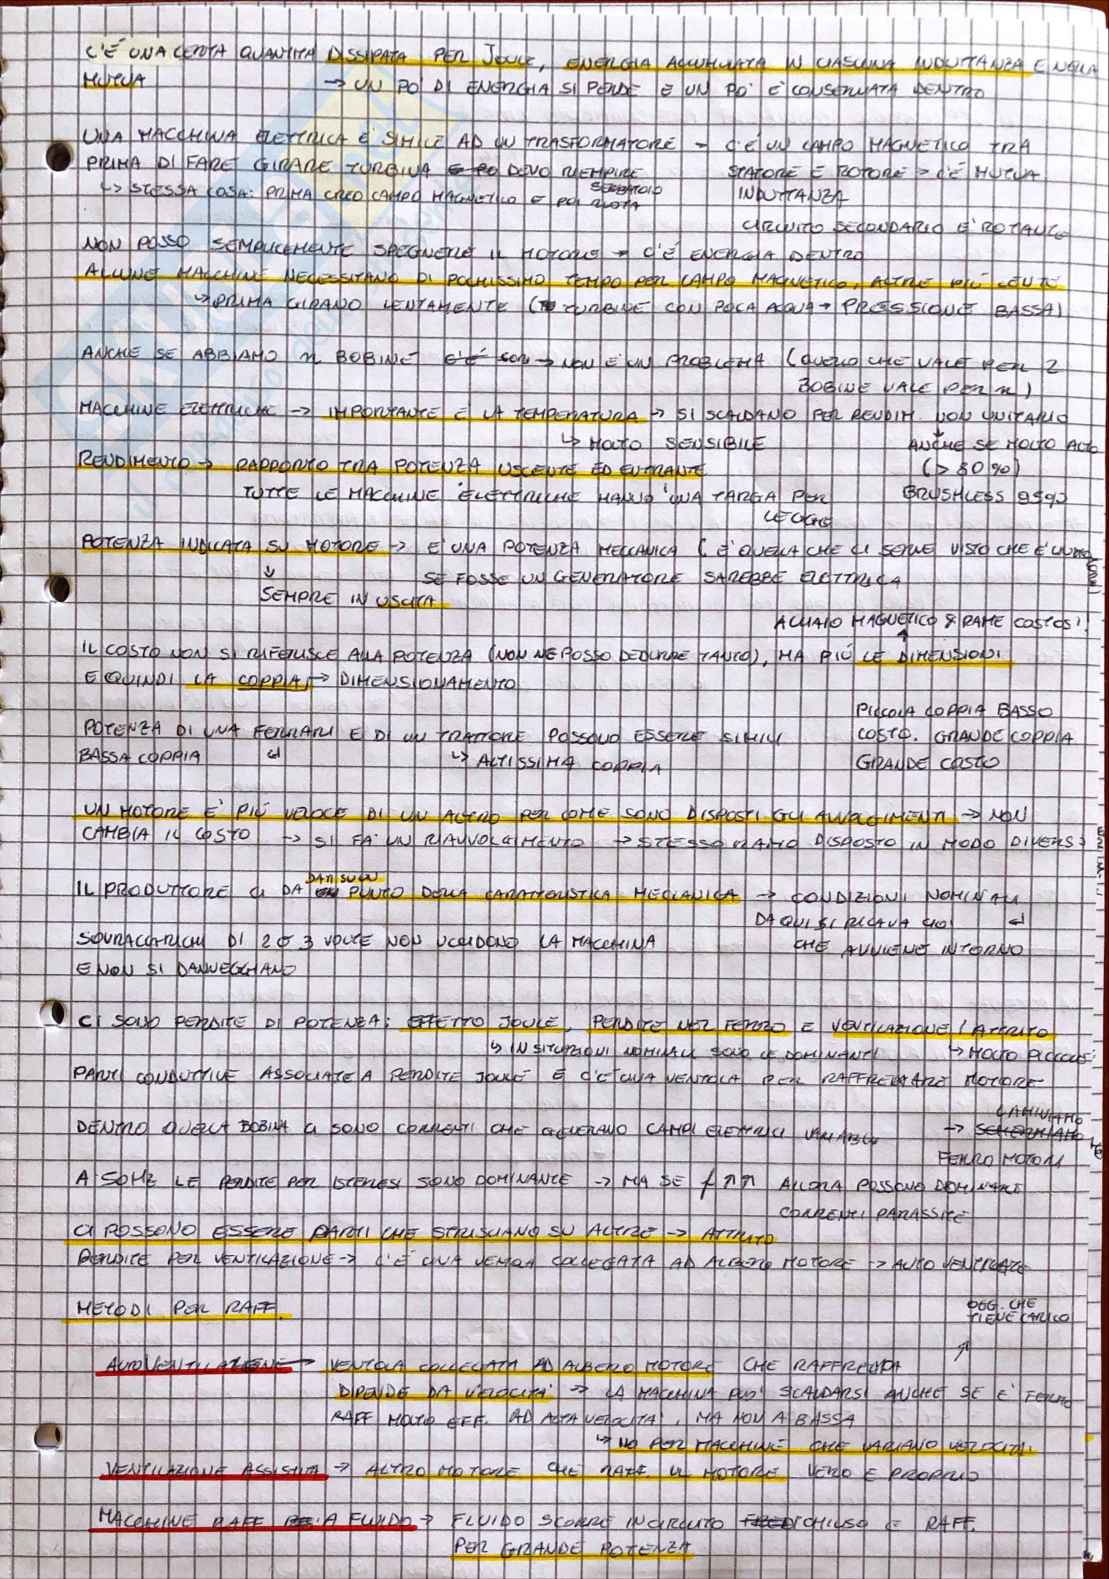 C'È UNA CERTA QUANTITÀ DISSIPATA PER JOULE, ENERGIA ACCUMULATA IN CIASCUNA INDUTTANZA E NELLA
MUTUA → UN PO' DI ENERGIA SI PERDE E UN PO' È CONSERVATA DENTRO
UNA MACCHINA ELETTRICA È SIMILE AD UN TRASFORMATORE → C'È UN CAMPO MAGNETICO TRA
PRIMA DI FARE GIRARE TURBINA DEVO RIEMPIRE STATORE E ROTORE → C'È MUTUA
SERBATOIO
↳ STESSA COSA: PRIMA CREO CAMPO MAGNETICO E POI RUOTA INDUTTANZA
CIRCUITO SECONDARIO È ROTANTE
NON POSSO SEMPLICEMENTE SPEGNERE IL MOTORE → C'È ENERGIA DENTRO
ALCUNE MACCHINE NECESSITANO DI POCHISSIMO TEMPO PER CAMPO MAGNETICO, ALTRE PIÙ LENTE
↳ PRIMA GIRANO LENTAMENTE (TURBINE CON POCA ACQUA → PRESSIONE BASSA)
ANCHE SE ABBIAMO n BOBINE → NON È UN PROBLEMA (QUELLO CHE VALE PER 2
BOBINE VALE PER n)
MACCHINE ELETTRICHE → IMPORTANTE È LA TEMPERATURA → SI SCALDANO PER RENDIM. NON UNITARIO
↳ MOLTO SENSIBILE ANCHE SE MOLTO ALTO
RENDIMENTO → RAPPORTO TRA POTENZA USCENTE ED ENTRANTE (> 80%)
TUTTE LE MACCHINE ELETTRICHE HANNO UNA TARGA PER BRUSHLESS 95%
LEGGE
POTENZA INDICATA SU MOTORE → È UNA POTENZA MECCANICA (È QUELLA CHE CI SERVE VISTO CHE È
↓ SE FOSSE UN GENERATORE SAREBBE ELETTRICA
SEMPRE IN USCITA
ACCIAIO MAGNETICO & RAME COSTOSI!
IL COSTO NON SI RIFERISCE ALLA POTENZA (NON NE POSSO DEDURRE TANTO), MA PIÙ LE DIMENSIONI
E QUINDI LA COPPIA → DIMENSIONAMENTO
PICCOLA COPPIA BASSO
POTENZA DI UNA FERRARI E DI UN TRATTORE POSSONO ESSERE SIMILI COSTO. GRANDE COPPIA
BASSA COPPIA ↲ ↳ ALTISSIMA COPPIA GRANDE COSTO
UN MOTORE È PIÙ VELOCE DI UN ALTRO PER COME SONO DISPOSTI GLI AVVOLGIMENTI → NON
CAMBIA IL COSTO → SI FA UN RIAVVOLGIMENTO → STESSO RAME DISPOSTO IN MODO DIVERSO
DATI SUL
IL PRODUTTORE CI DA PUNTO DELLA CARATTERISTICA MECCANICA → CONDIZIONI NOMINALI
DA QUI SI RICAVA CIÒ ↲
SOVRACCARICHI DI 2 O 3 VOLTE NON UCCIDONO LA MACCHINA CHE AVVIENE INTORNO
E NON SI DANNEGGIANO
CI SONO PERDITE DI POTENZA: EFFETTO JOULE, PERDITE NEL FERRO E VENTILAZIONE / ATTRITO
↳ IN SITUAZIONI NOMINALI SONO LE DOMINANTI ↳ MOLTO PICCOLE
PARTI CONDUTTIVE ASSOCIATE A PERDITE JOULE E C'È UNA VENTOLA PER RAFFREDDARE MOTORE
LAMINIAMO
DENTRO QUELLA BOBINA CI SONO CORRENTI CHE GENERANO CAMPI ELETTRICI VARIABILI → SCHERMIAMO
FERRO MOTORI
A 50HZ LE PERDITE PER ISTERESI SONO DOMINANTE → MA SE f ↑↑ ALLORA POSSONO DOMINARE
CORRENTI PARASSITE
CI POSSONO ESSERE PARTI CHE STRISCIANO SU ALTRE → ATTRITO
PERDITE PER VENTILAZIONE → C'È UNA VENTOLA COLLEGATA AD ALBERO MOTORE → AUTO VENTILATE
METODI PER RAFF.
OGG. CHE
TIENE CARICO
AUTOVENTILAZIONE → VENTOLA COLLEGATA AD ALBERO MOTORE CHE RAFFREDDA
DIPENDE DA VELOCITÀ → LA MACCHINA PUÒ SCALDARSI ANCHE SE È FERMA
RAFF MOLTO EFF. AD ALTA VELOCITÀ, MA NON A BASSA
↳ NO PER MACCHINE CHE VARIANO VELOCITÀ
VENTILAZIONE ASSISTITA → ALTRO MOTORE CHE RAFF. IL MOTORE VERO E PROPRIO
MACCHINE RAFF A FLUIDO → FLUIDO SCORRE IN CIRCUITO CHIUSO E RAFF.
PER GRANDE POTENZA